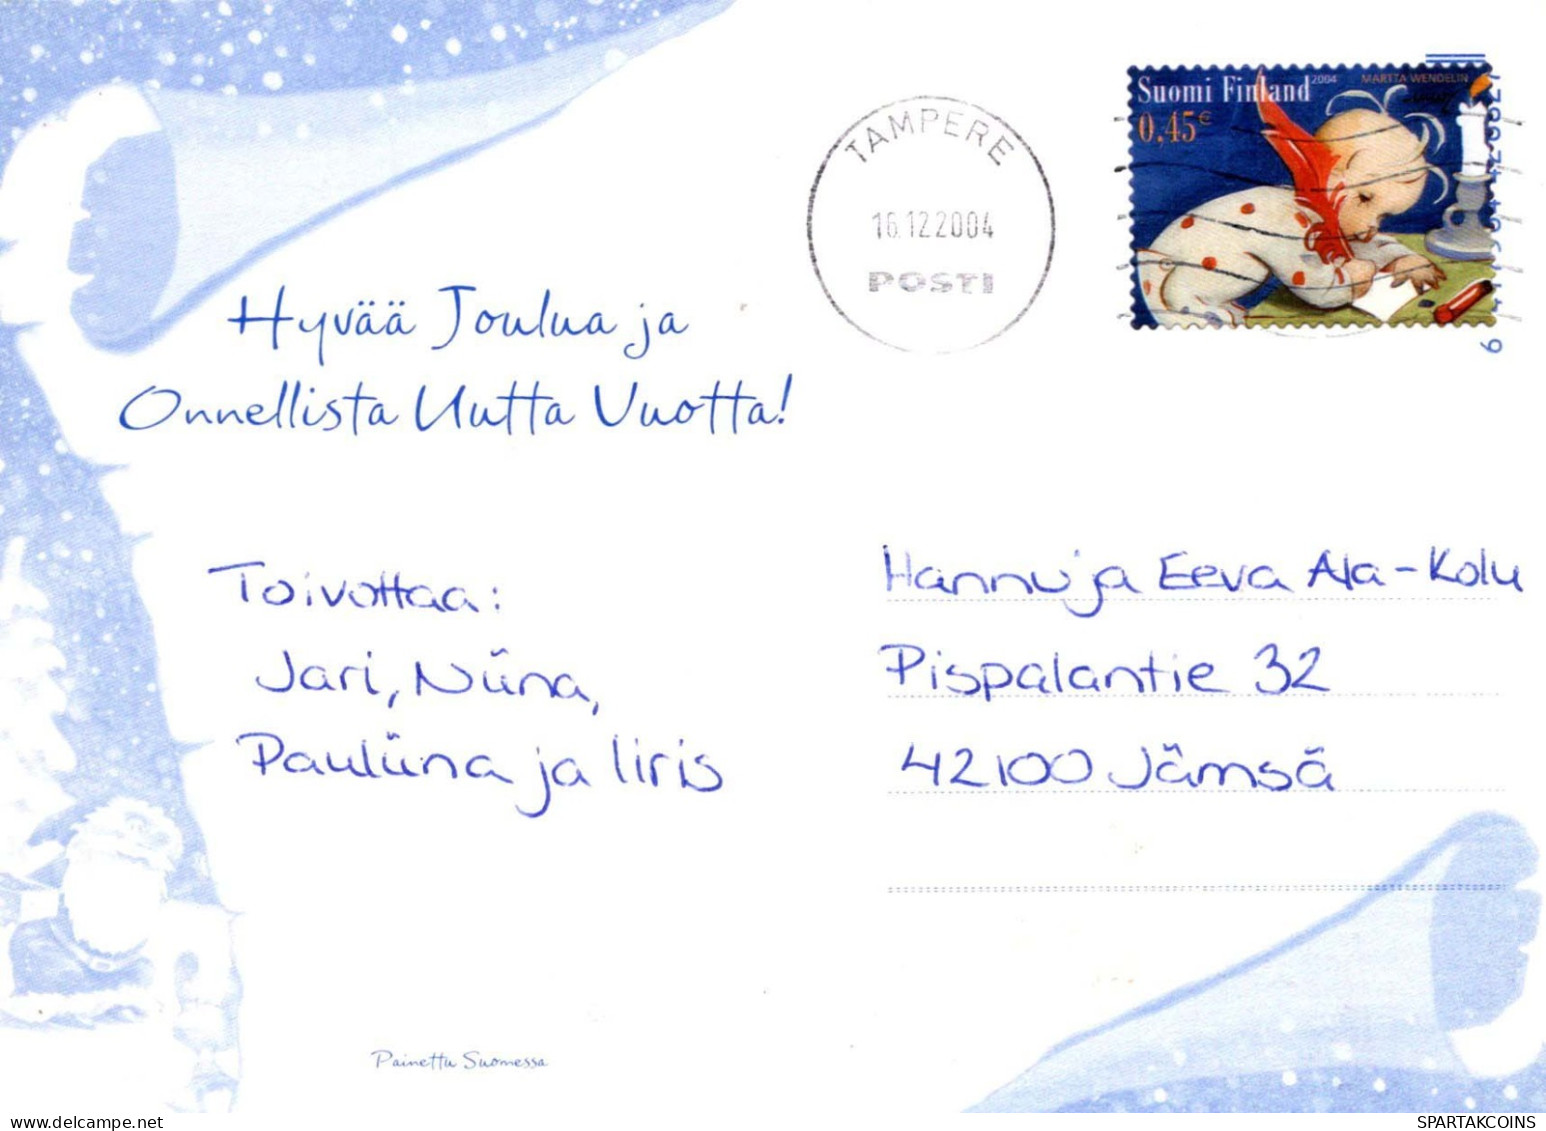 Suomi Finland 2004 MARTTA WENDELIN
0,45€
TAMPERE
16.12.2004
POSTI
Hyvää Joulua ja
Onnellista Uutta Vuotta!
Toivottaa:
Jari, Niina,
Pauliina ja Iiris
Hannu ja Eeva Ala-Kolu
Pispalantie 32
42100 Jämsä
Painettu Suomessa
www.delcampe.net
SPARTAKCOINS